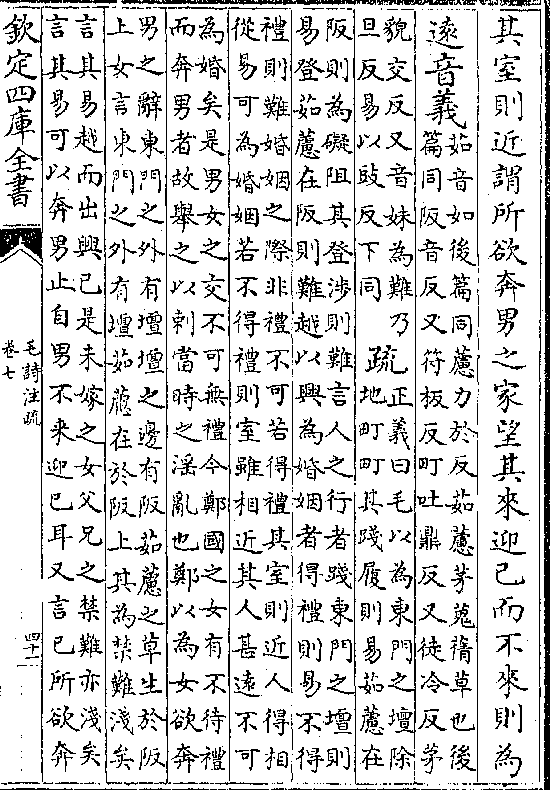 其室則近謂所欲奔男之家望其來迎己而不來則為
遠音義
茹音如後篇同藘力於反茹藘茅蒐蒨草也後
篇同阪音反又符板反町吐鼎反又徒冷反茅
貌交反又音妹為難乃
旦反易以豉反下同
疏
正義曰毛以為東門之壇除
地町町其踐履則易茹藘在
阪則為礙阻其登涉則難言人之行者踐東門之壇則
易登茹藘在阪則難越以興為婚姻者得禮則易不得
禮則難婚姻之際非禮不可若得禮其室則近人得相
從易可為婚姻若不得禮則室雖相近其人甚遠不可
為婚矣是男女之交不可無禮今鄭國之女有不待禮
而奔男者故舉之以刺當時之淫亂也鄭以為女欲奔
男之辭東門之外有壇壇之邊有阪茹藘之草生於阪
上女言東門之外有壇茹藘在於阪上其為禁難淺矣
言其易越而出興己是未嫁之女父兄之禁難亦淺矣
言其易可以奔男止自男不來迎己耳又言己所欲奔
欽定四庫全書
毛詩注疏
卷七
四十二